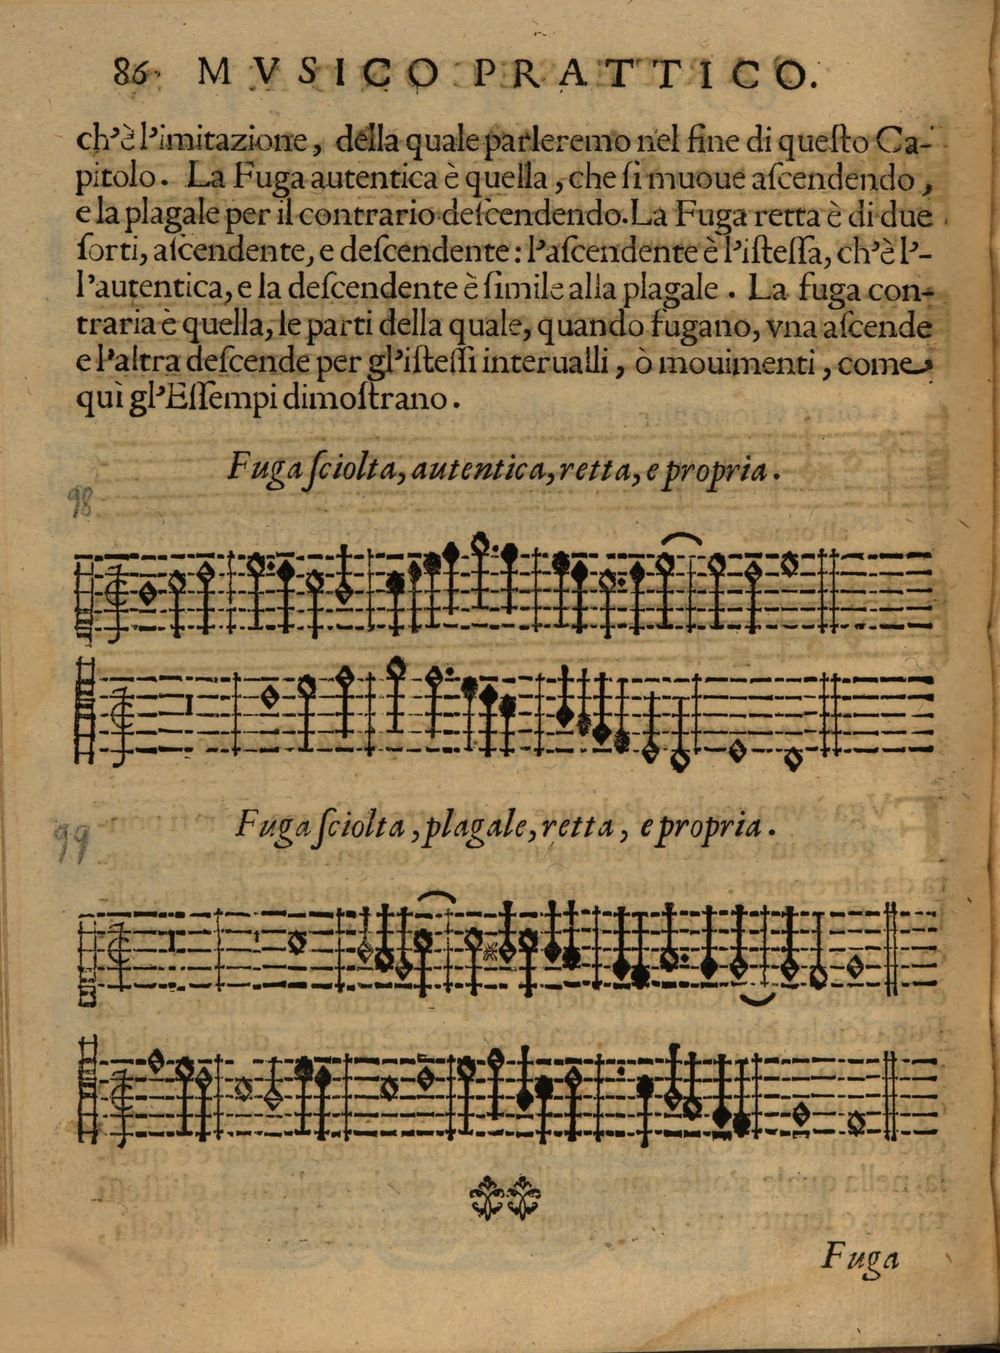 86. MVSICO PRATTICO.
ch'è l'imitazione, della quale parleremo nel fine di queſto Ca-
pitolo. La Fuga autentica è quella, che ſi muoue aſcendendo,
e la plagale per il contrario deſcendendo. La Fuga retta è di due
ſorti, aſcendente, e deſcendente: l'aſcendente è l'iſteſſa, ch'è l'-
l'autentica, e la deſcendente è ſimile alla plagale. La fuga con-
traria è quella, le parti della quale, quando fugano, vna aſcende
e l'altra deſcende per gl'iſteſſi interualli, ò mouimenti, come
quì gl'Eſſempi dimoſtrano.
Fuga ſciolta, autentica, retta, e propria.
98
Fuga ſciolta, plagale, retta, e propria.
99
Fuga